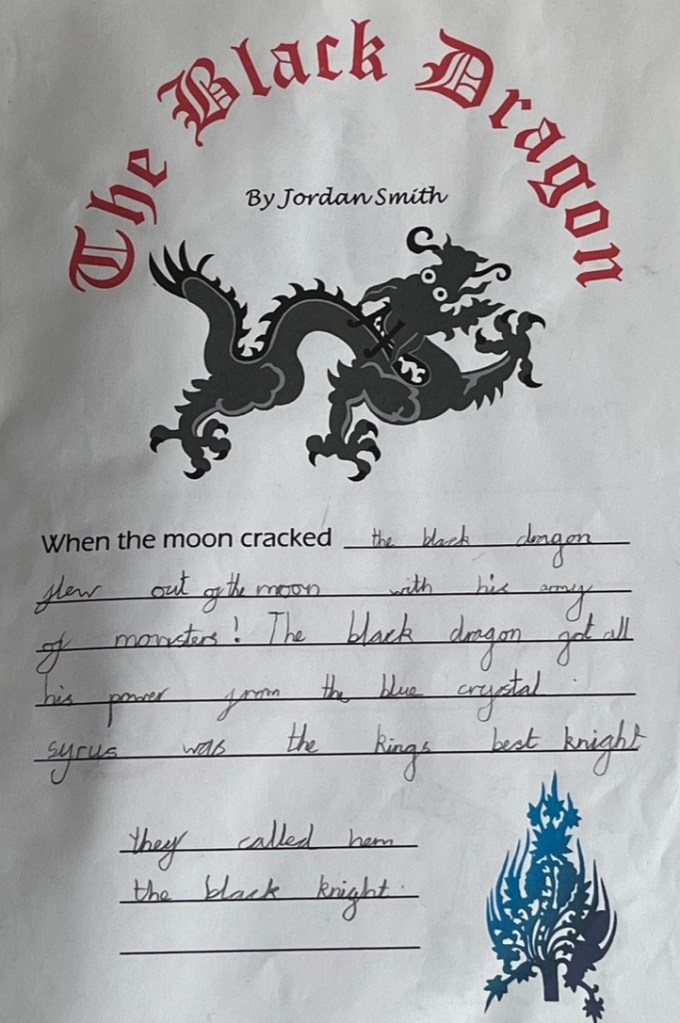 The Black Dragon
By Jordan Smith
When the moon cracked the black dragon
flew out of the moon with his army
of monsters! The black dragon got all
his power from the blue crystal.
syrus was the kings best knight
they called hem
the black knight.